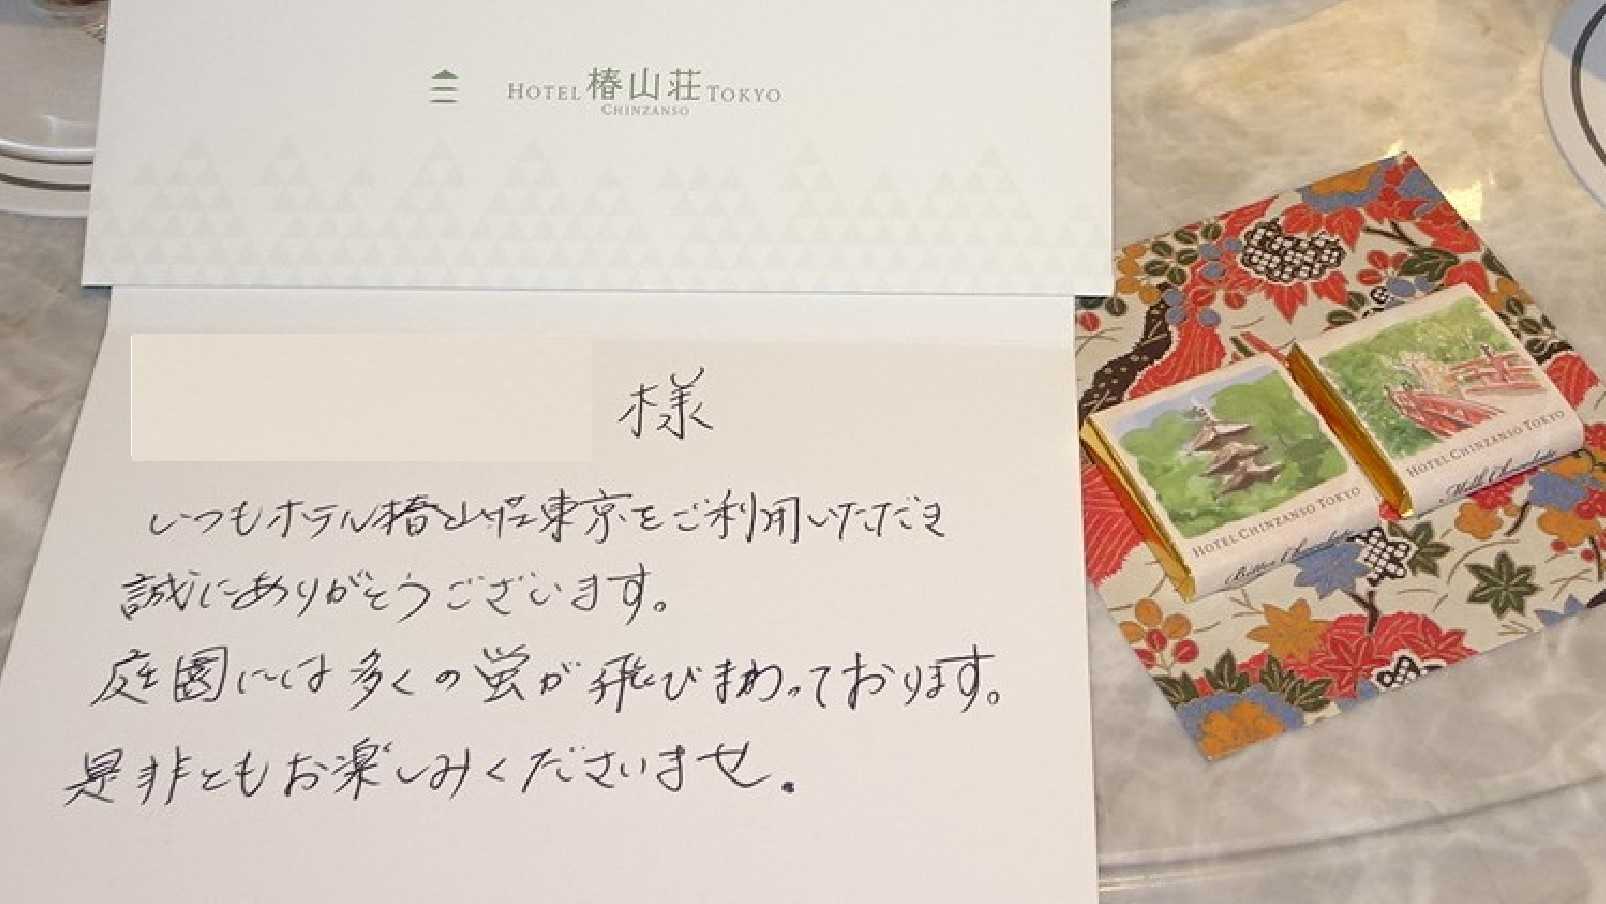 HOTEL 椿山荘 TOKYO
CHINZANSO
様
いつもホテル椿山荘東京をご利用いただき
誠にありがとうございます。
庭園には多くの蛍が飛びまわっております。
是非ともお楽しみくださいませ。
HOTEL CHINZANSO TOKYO
Bitter Chocolate
HOTEL CHINZANSO TOKYO
Milk Chocolate